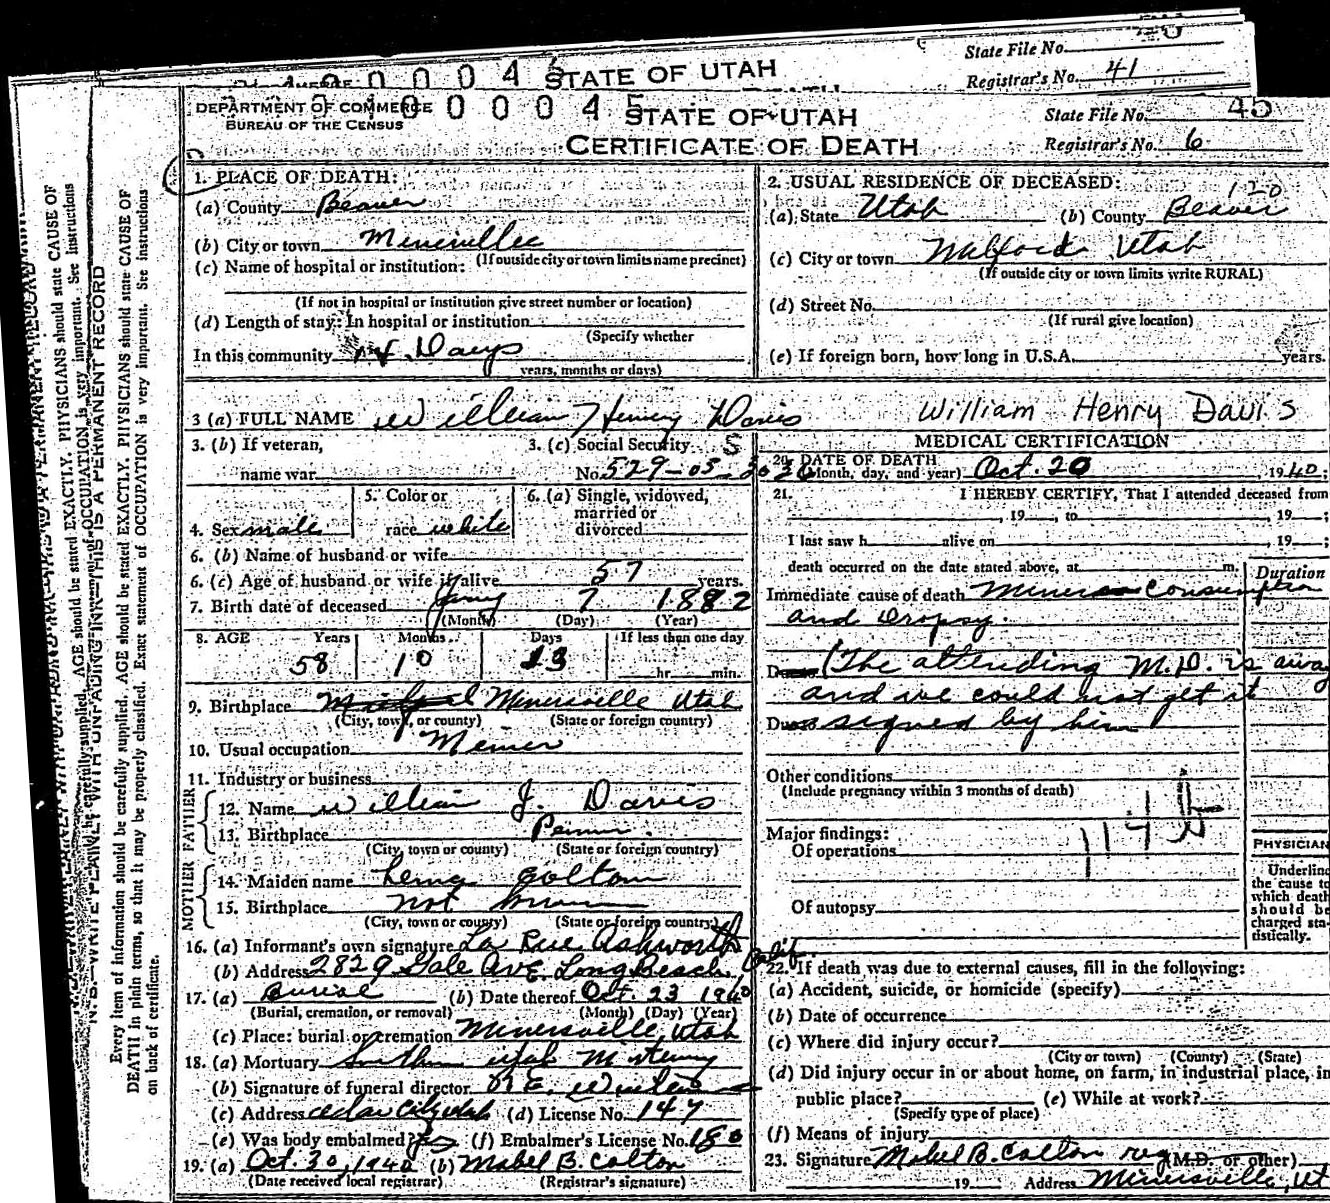 State File No.
Registrar's No. 41
STATE OF UTAH
DEPARTMENT OF COMMERCE
BUREAU OF THE CENSUS
STATE OF UTAH
CERTIFICATE OF DEATH
State File No. 45
Registrar's No. 6
1. PLACE OF DEATH:
(a) County Beaver
(b) City or town Minersville
(If outside city or town limits name precinct)
(c) Name of hospital or institution:
(If not in hospital or institution give street number or location)
(d) Length of stay: In hospital or institution
(Specify whether
In this community Days
years, months or days)
2. USUAL RESIDENCE OF DECEASED:
120
(a) State Utah (b) County Beaver
(c) City or town Milford Utah
(If outside city or town limits write RURAL)
(d) Street No.
(If rural give location)
(e) If foreign born, how long in U.S.A. years.
3 (a) FULL NAME William Henry Davis William Henry Davis
3. (b) If veteran,
name war
3. (c) Social Security
No. 529-05-3036
4. Sex male
5. Color or
race white
6. (a) Single, widowed,
married or
divorced
S
6. (b) Name of husband or wife
6. (c) Age of husband or wife if alive 57 years.
7. Birth date of deceased 7 1882
(Month) (Day) (Year)
8. AGE Years Months Days If less than one day
58 10 13 hr. min.
9. Birthplace Minersville Utah
(City, town, or county) (State or foreign country)
10. Usual occupation Meiner
11. Industry or business
FATHER
12. Name William J. Davis
13. Birthplace
(City, town or county) (State or foreign country)
MOTHER
14. Maiden name
15. Birthplace not
(City, town or county) (State or foreign country)
16. (a) Informant's own signature La Rue Ashworth
(b) Address 2829 Gale Ave. Long Beach, Calif.
17. (a) Burial (b) Date thereof Oct. 23 1940
(Burial, cremation, or removal) (Month) (Day) (Year)
(c) Place: burial or cremation Minersville, Utah
18. (a) Mortuary Southern Utah Mortuary
(b) Signature of funeral director
(c) Address Cedar City Utah (d) License No. 147
(e) Was body embalmed? yes (f) Embalmer's License No. 180
19. (a) Oct. 30, 1940 (b) Mabel B. Colton
(Date received local registrar) (Registrar's signature)
MEDICAL CERTIFICATION
20. DATE OF DEATH
(Month, day, and year) Oct. 20 1940;
21. I HEREBY CERTIFY, That I attended deceased from
, 19 , to , 19 ;
I last saw h alive on , 19 ;
death occurred on the date stated above, at m.
Duration
Immediate cause of death Miners Consumption
and Dropsy.
Due (The attending M.D. is away
and we could not get it
Due signed by him
Other conditions
(Include pregnancy within 3 months of death)
Major findings:
Of operations
Of autopsy
PHYSICIAN
Underline
the cause to
which death
should be
charged sta-
tistically.
22. If death was due to external causes, fill in the following:
(a) Accident, suicide, or homicide (specify)
(b) Date of occurrence
(c) Where did injury occur?
(City or town) (County) (State)
(d) Did injury occur in or about home, on farm, in industrial place, in
public place? (e) While at work?
(Specify type of place)
(f) Means of injury
23. Signature Mabel B. Colton reg (M.D. or other)
19 Address Minersville, Ut
Every item of information should be carefully supplied. AGE should be stated EXACTLY. PHYSICIANS should state CAUSE OF
DEATH in plain terms, so that it may be properly classified. Exact statement of OCCUPATION is very important. See instructions
on back of certificate.
N. B.—WRITE PLAINLY, WITH UNFADING INK—THIS IS A PERMANENT RECORD